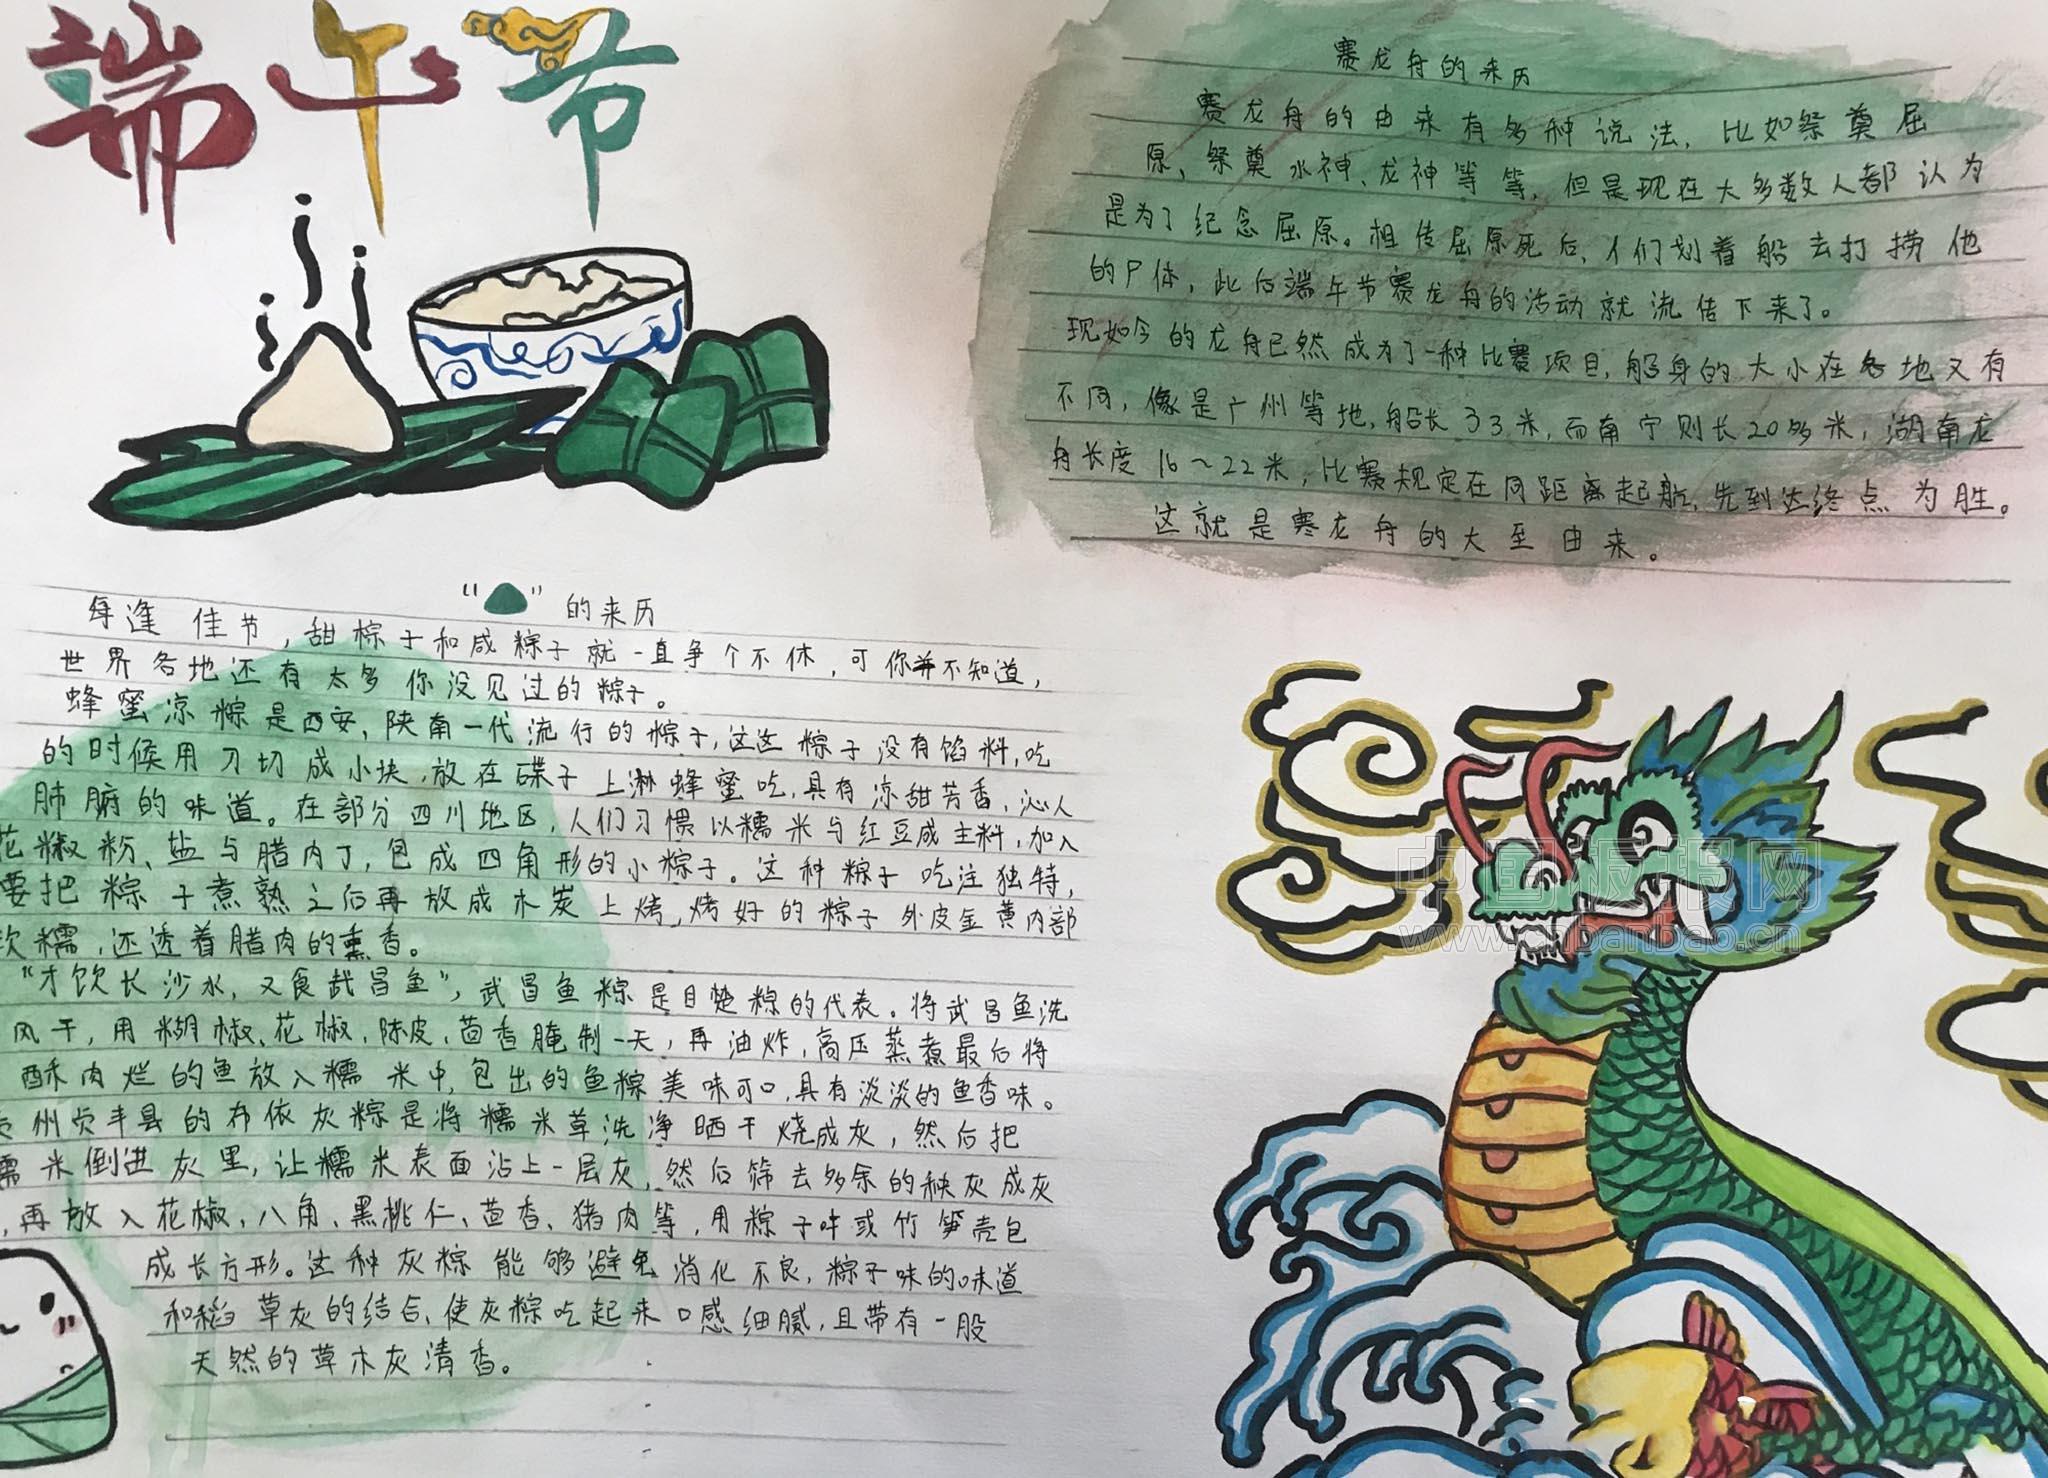 端午节
赛龙舟的来历
赛龙舟的由来有多种说法，比如祭奠屈
原、祭奠水神、龙神等等，但是现在大多数人都认为
是为了纪念屈原。相传屈原死后，人们划着船去打捞他
的尸体，此后端午节赛龙舟的活动就流传下来了。
现如今的龙舟已然成为了一种比赛项目，船身的大小在各地又有
不同，像是广州等地，船长33米，而南宁则长20多米，湖南龙
舟长度16～22米，比赛规定在同距离起航，先到达终点为胜。
这就是赛龙舟的大至由来。
“ ”的来历
每逢佳节，甜棕子和咸粽子就一直争个不休，可你并不知道，
世界各地还有太多你没见过的粽子。
蜂蜜凉粽是西安，陕南一代流行的粽子，这这粽子没有馅料，吃
的时候用刀切成小块，放在碟子上淋蜂蜜吃，具有凉甜芳香，沁人
肺腑的味道。在部分四川地区，人们习惯以糯米与红豆成主料，加入
花椒粉、盐与腊肉丁，包成四角形的小粽子。这种粽子吃法独特，
要把粽子煮熟之后再放成木炭上烤，烤好的粽子外皮金黄内部
软糯，还透着腊肉的熏香。
“才饮长沙水，又食武昌鱼”，武昌鱼粽是目楚粽的代表。将武昌鱼洗
风干，用糊椒、花椒，陈皮，茴香腌制一天，再油炸，高压蒸煮最后将
酥肉烂的鱼放入糯米中，包出的鱼粽美味可口，具有淡淡的鱼香味。
州贞丰县的布依灰粽是将糯米草洗净晒干烧成灰，然后把
糯米倒进灰里，让糯米表面沾上一层灰，然后筛去多余的秧灰成灰
，再放入花椒，八角、黑桃仁、茴香、猪肉等，用粽子叶或竹笋壳包
成长方形。这种灰粽能够避免消化不良，粽子味的味道
和稻草灰的结合，使灰粽吃起来口感细腻，且带有一股
天然的草木灰清香。
中国板报网
www.banbao.cn